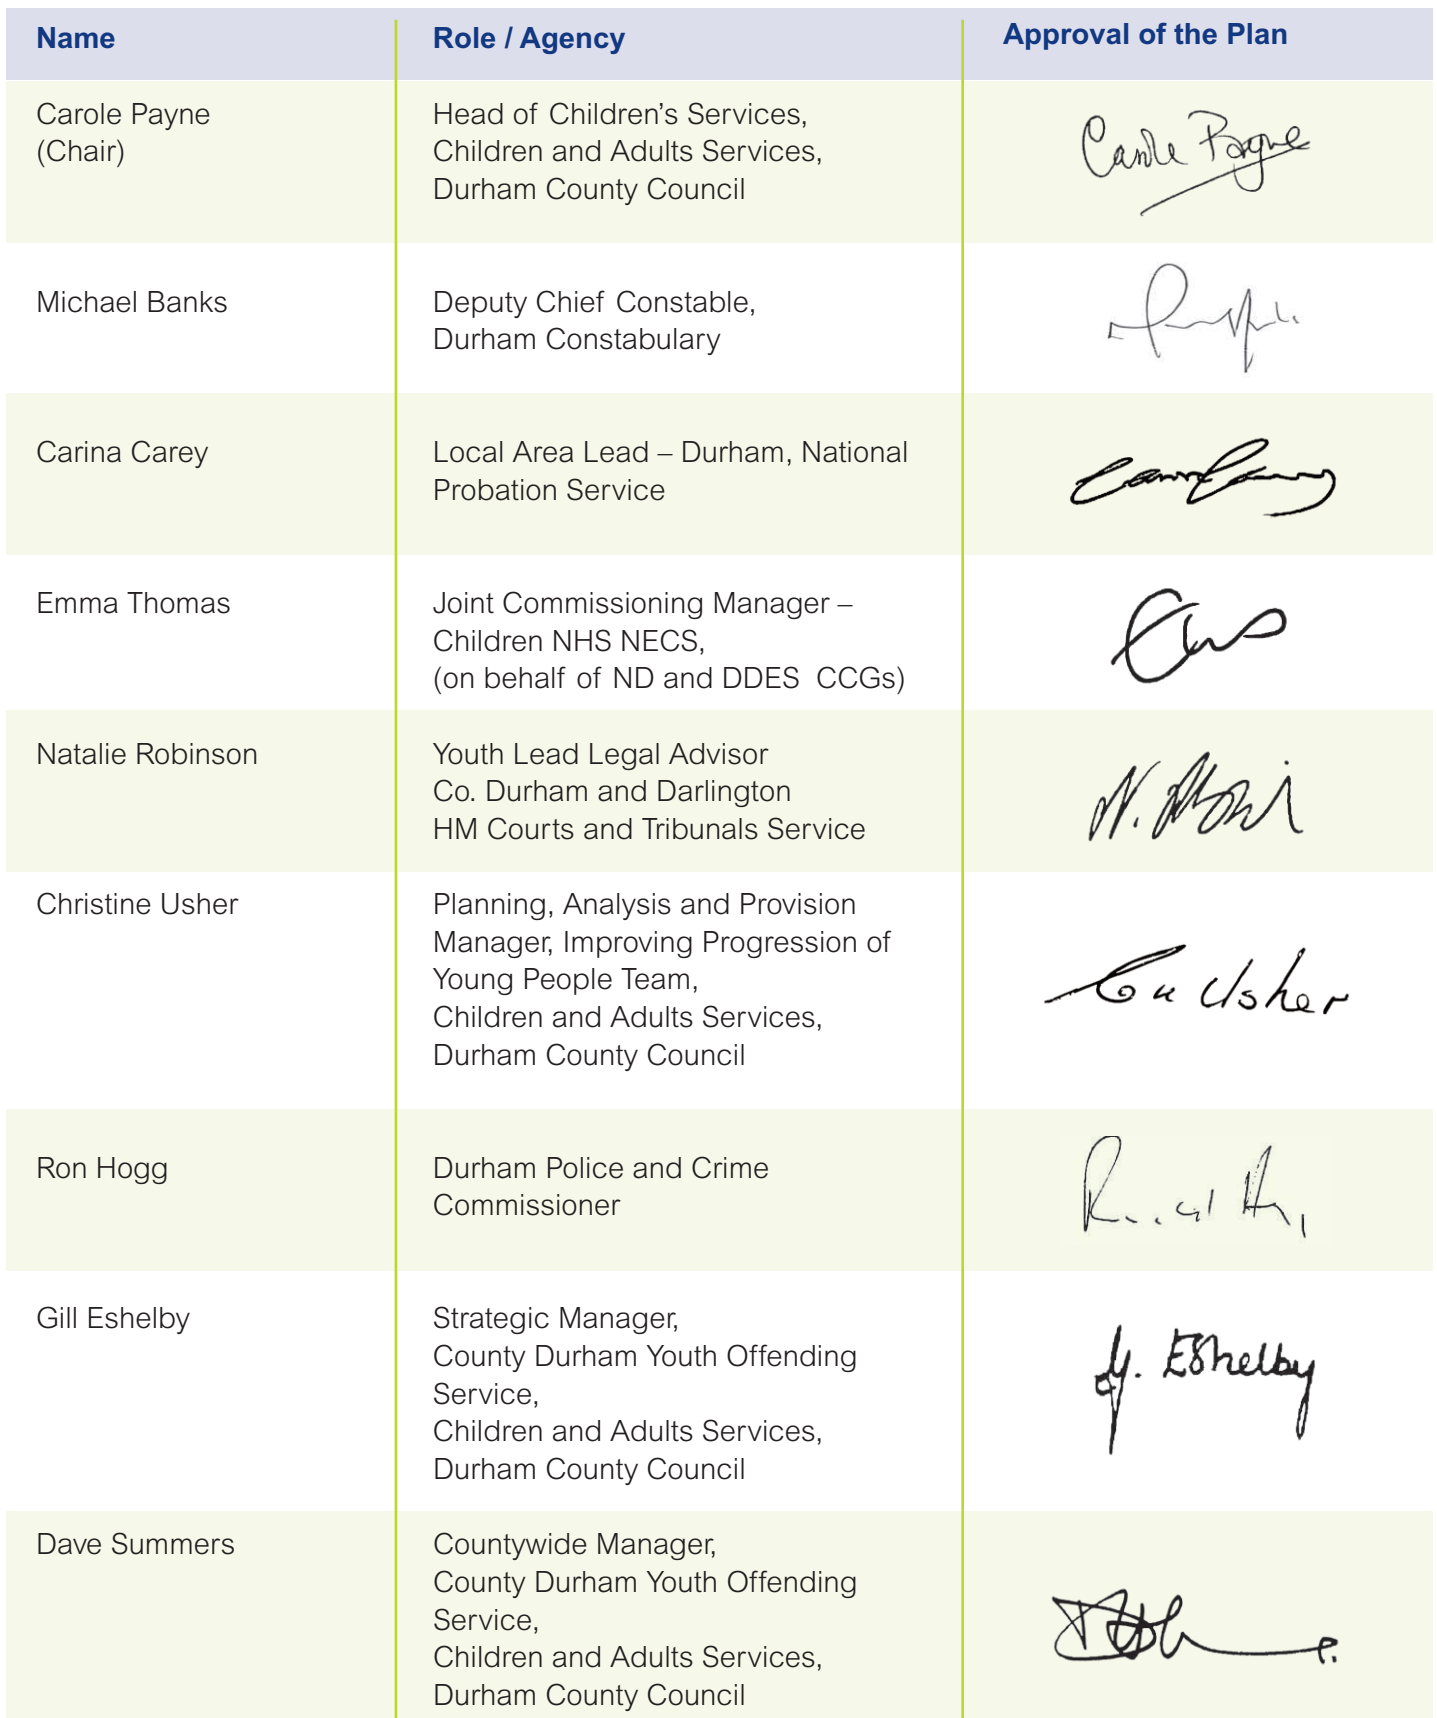 Name
Role / Agency
Approval of the Plan
Carole Payne
(Chair)
Head of Children’s Services,
Children and Adults Services,
Durham County Council
Carole Payne
Michael Banks
Deputy Chief Constable,
Durham Constabulary
Carina Carey
Local Area Lead – Durham, National
Probation Service
Emma Thomas
Joint Commissioning Manager –
Children NHS NECS,
(on behalf of ND and DDES CCGs)
Natalie Robinson
Youth Lead Legal Advisor
Co. Durham and Darlington
HM Courts and Tribunals Service
N.
Christine Usher
Planning, Analysis and Provision
Manager, Improving Progression of
Young People Team,
Children and Adults Services,
Durham County Council
Usher
Ron Hogg
Durham Police and Crime
Commissioner
Gill Eshelby
Strategic Manager,
County Durham Youth Offending
Service,
Children and Adults Services,
Durham County Council
G. Eshelby
Dave Summers
Countywide Manager,
County Durham Youth Offending
Service,
Children and Adults Services,
Durham County Council